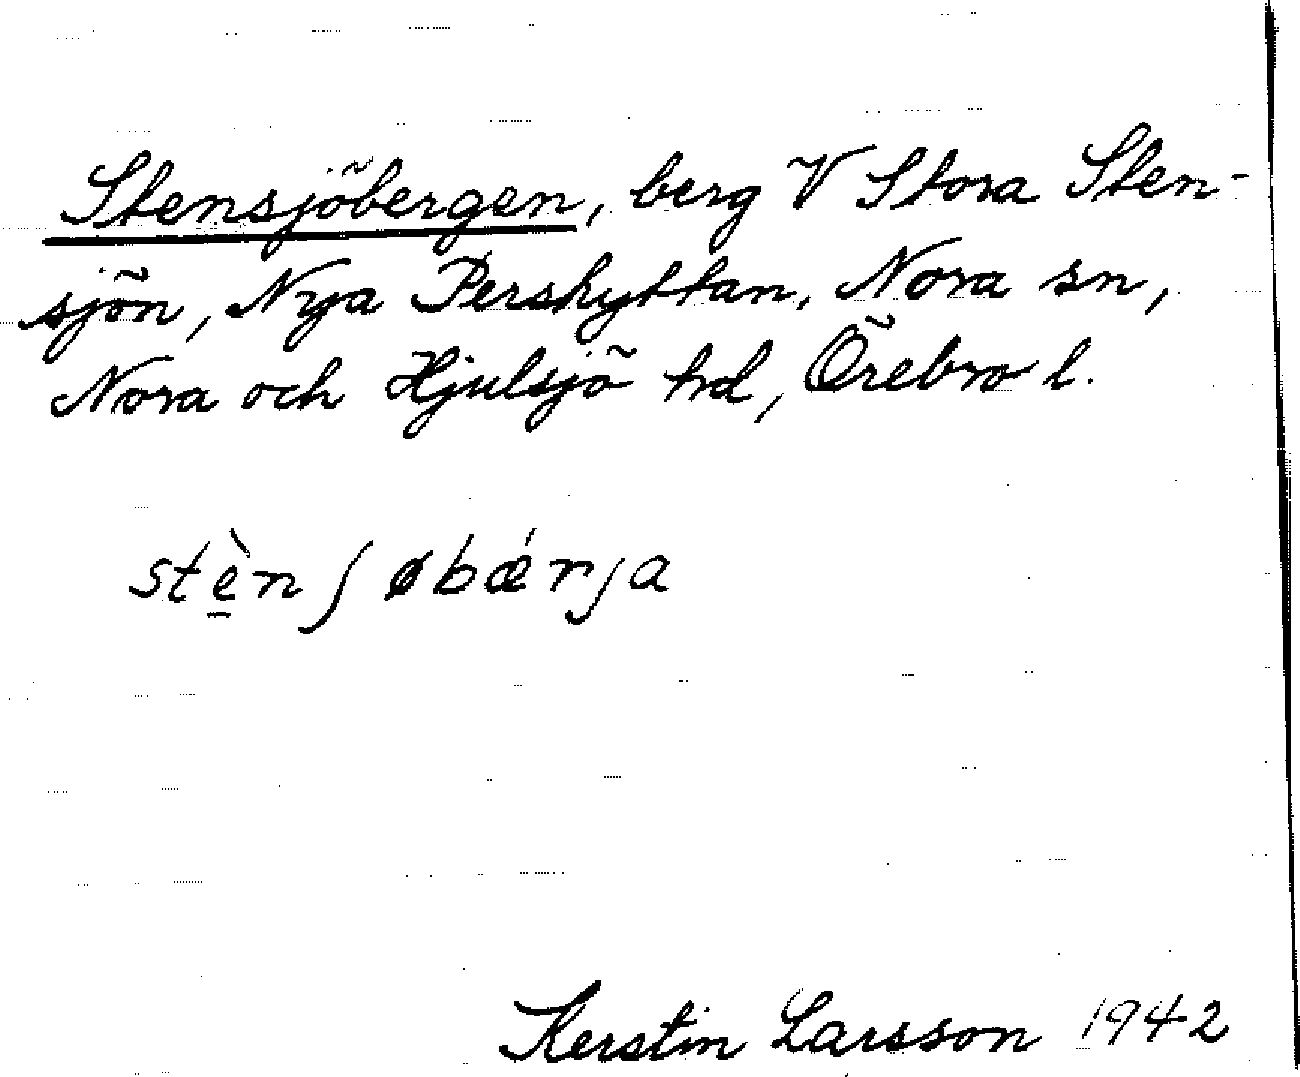 Stensjöbergen, berg V Stora Sten-
sjön, Nya Pershyttan, Nora sn,
Nora och Hjulsjö hd, Örebro l.
stè̱nʃøbǽrja
Kerstin Larsson 1942